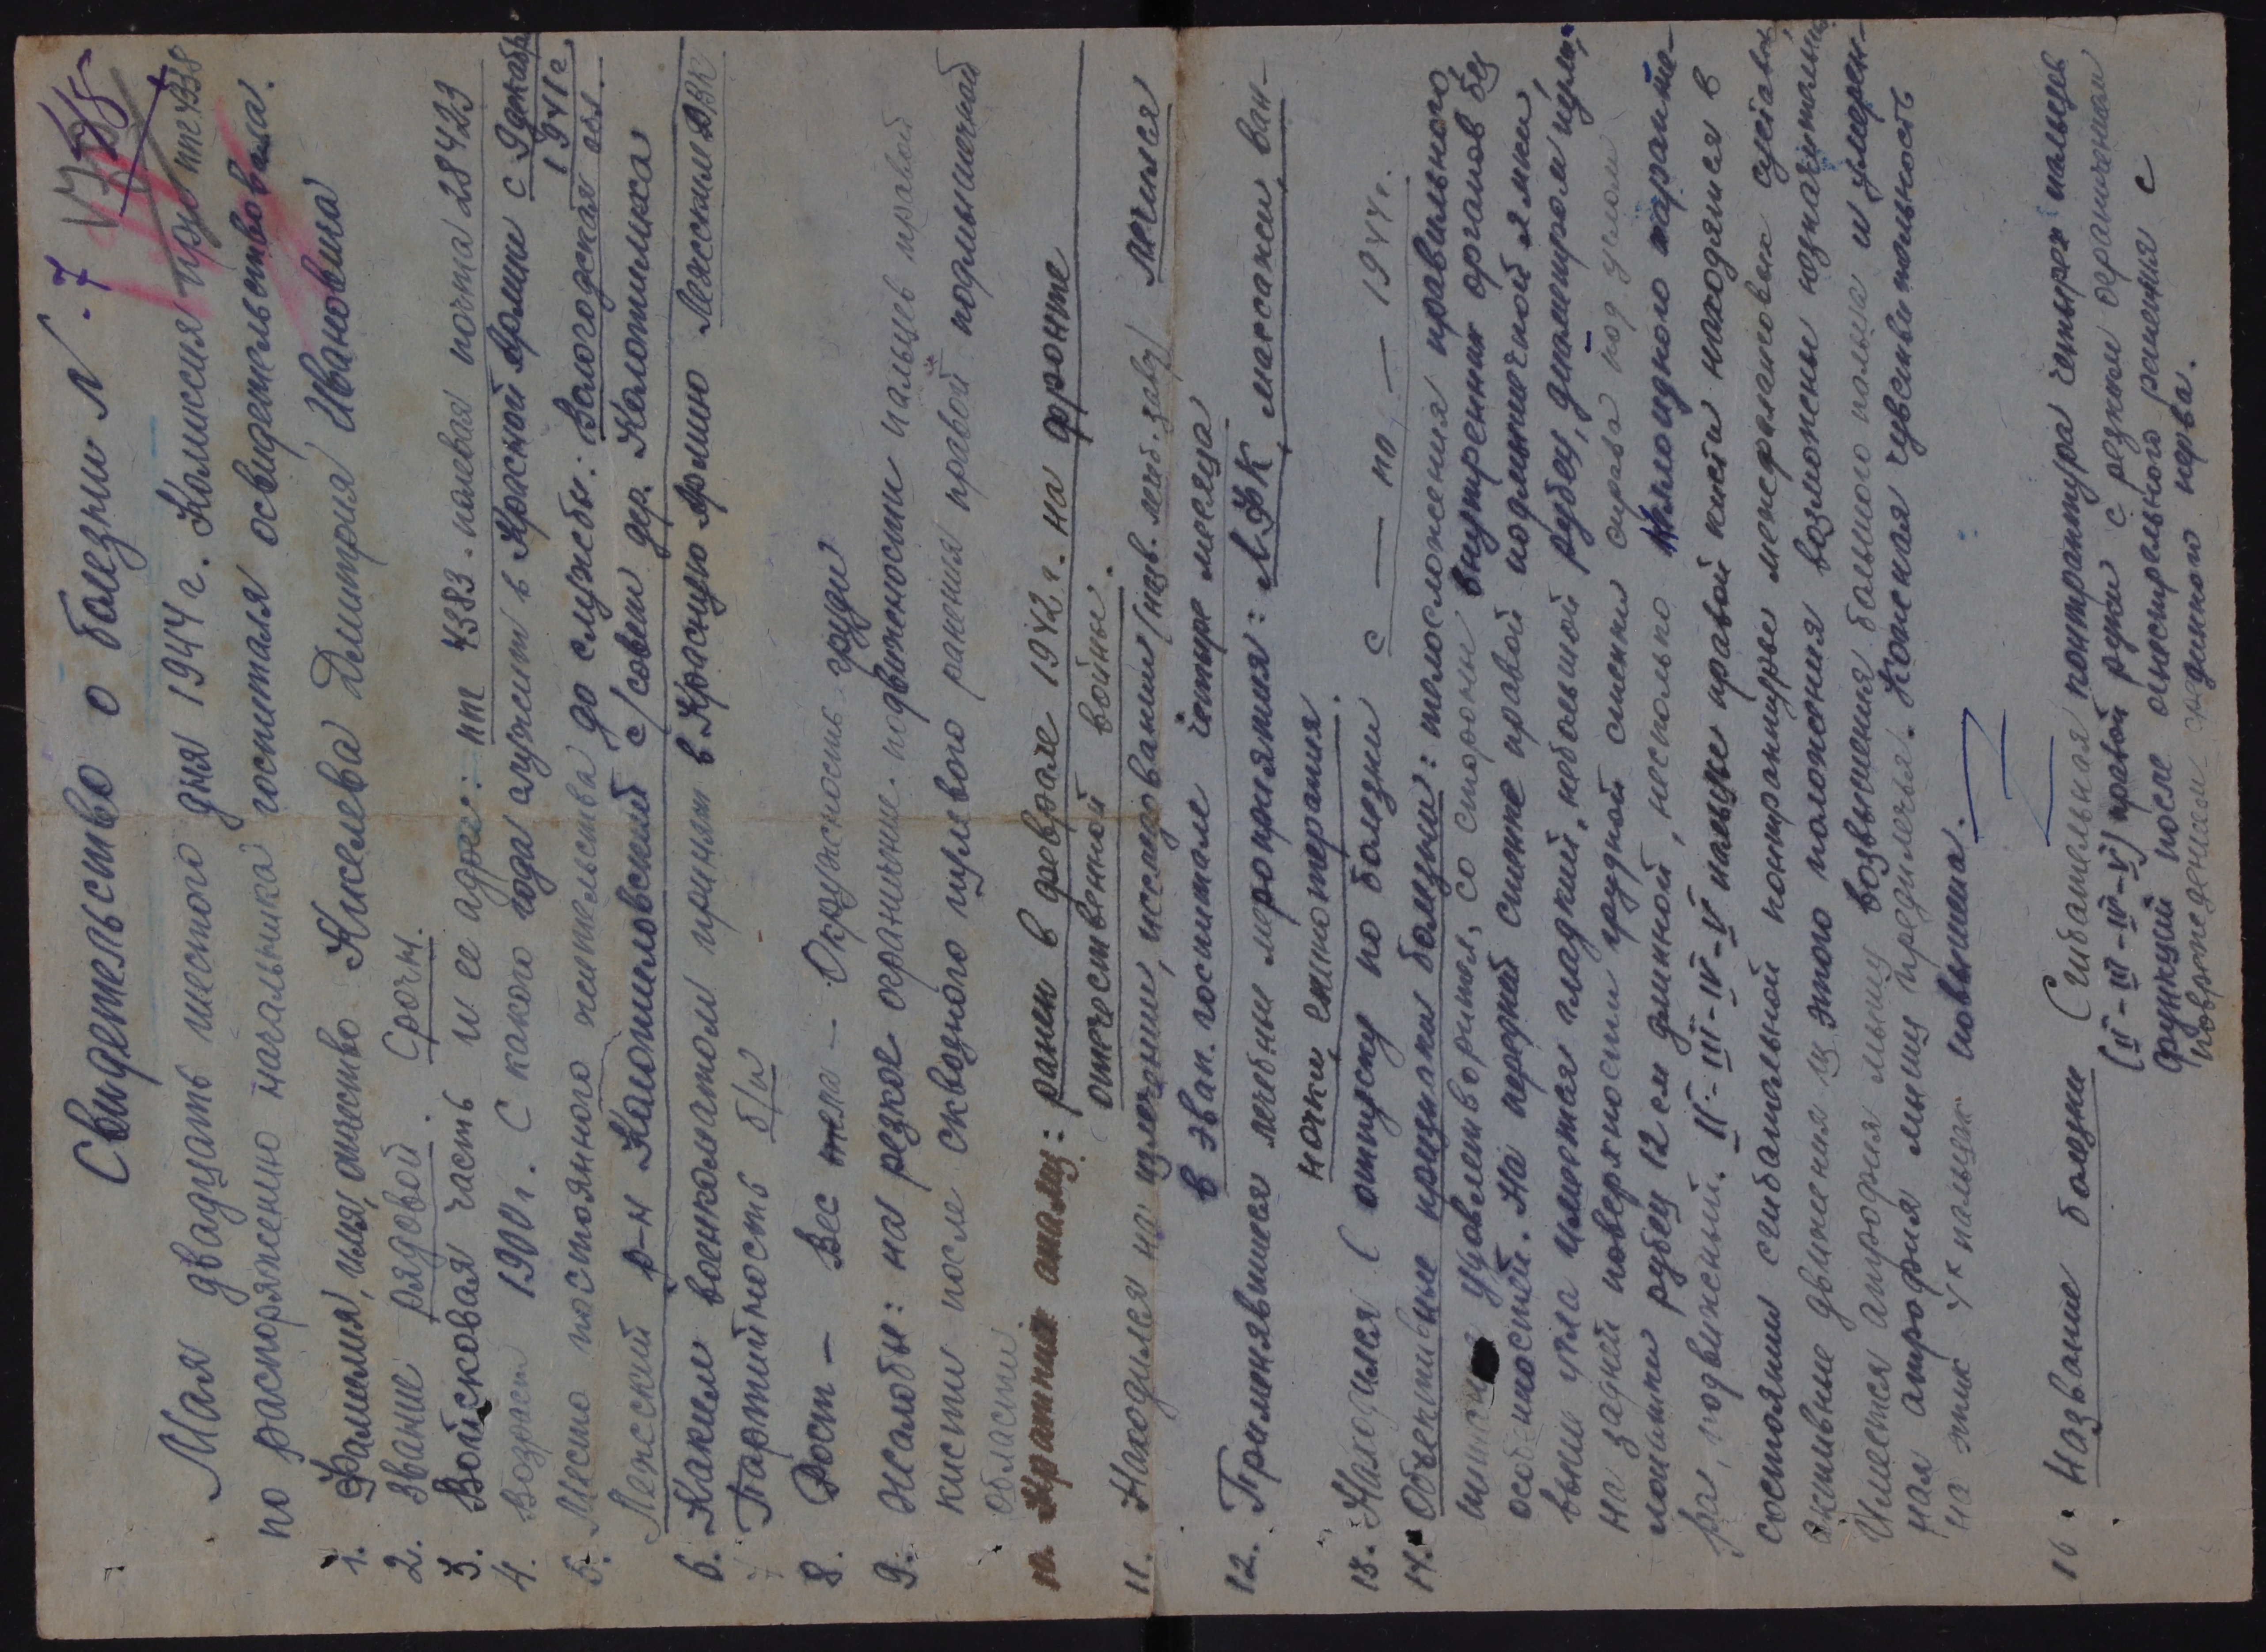 Свидетельство о болезни N 7
Мая двадцать шестого дня 1944 г. Комиссия при ппг 4338
по распоряжению начальника госпиталя освидетельствовала.
1. Фамилия, имя, отчество Киселева Дмитрия Ивановича
2. Звание рядовой. Срочн.
3. Войсковая часть и ее адрес: ппг 4383 - полевая почта 28423
4. Возраст 1900 г. С какого года служит в Красной Армии с 9 декабр 1941 г.
5. Место постоянного жительства до службы: Вологодская обл.
Лежский р-н Калотиловский с/совет дер. Калотиловка
6. Каким военкоматом принят в Красную Армию Лежским РВК
7. Партийность б/п
8. Рост - Вес тела - Окружность груди
9. Жалобы: на резкое ограничение подвижности пальцев правой
кисти после сквозного пулевого ранения правой подмышечной
области.
10. Кратник анамнез: ранен в феврале 1942 г. на фронте
отечественной войны.
11. Находился на излечении, исследовании (назв. леч. зав.) лечился
в эвак. госпитале четыре месяца
12. Применявшиеся лечебные мероприятия: ЛФК, массажи, ван-
ночки,
13. Находился в отпуску по болезни с — по — 1944 г.
14. Объективные признаки болезни: телосложения правильного,
питание удовлетворител, со стороны внутренних органов без
особенностей. На передней стенке правой подмышечной ямки
выше угла имеется гладкий, небольшой рубец, диаметром 1/2 см,
на задней поверхности грудной стенки справа под углом
лопатки рубец 12 см длинной, несколько килоидного характе-
ра, подвижный. II-III-IV-V пальцы правой кисти находятся в
состоянии сгибательной контрактуре межфаланговых суставах,
активные движения из этого положения возможены незначительны.
Имеется атрофия мышц возвышения большого пальца и умерен-
ная атрофия мышц предплечья. Кожная чувствительность
на этих 4х пальцах повышена.
16. Название болезни Сгибательная контрактура четырех пальцев
(II-III-IV-V) правой руки с резким ограничением
функций после огнестрельного ранения с
повреждением срединного нерва.